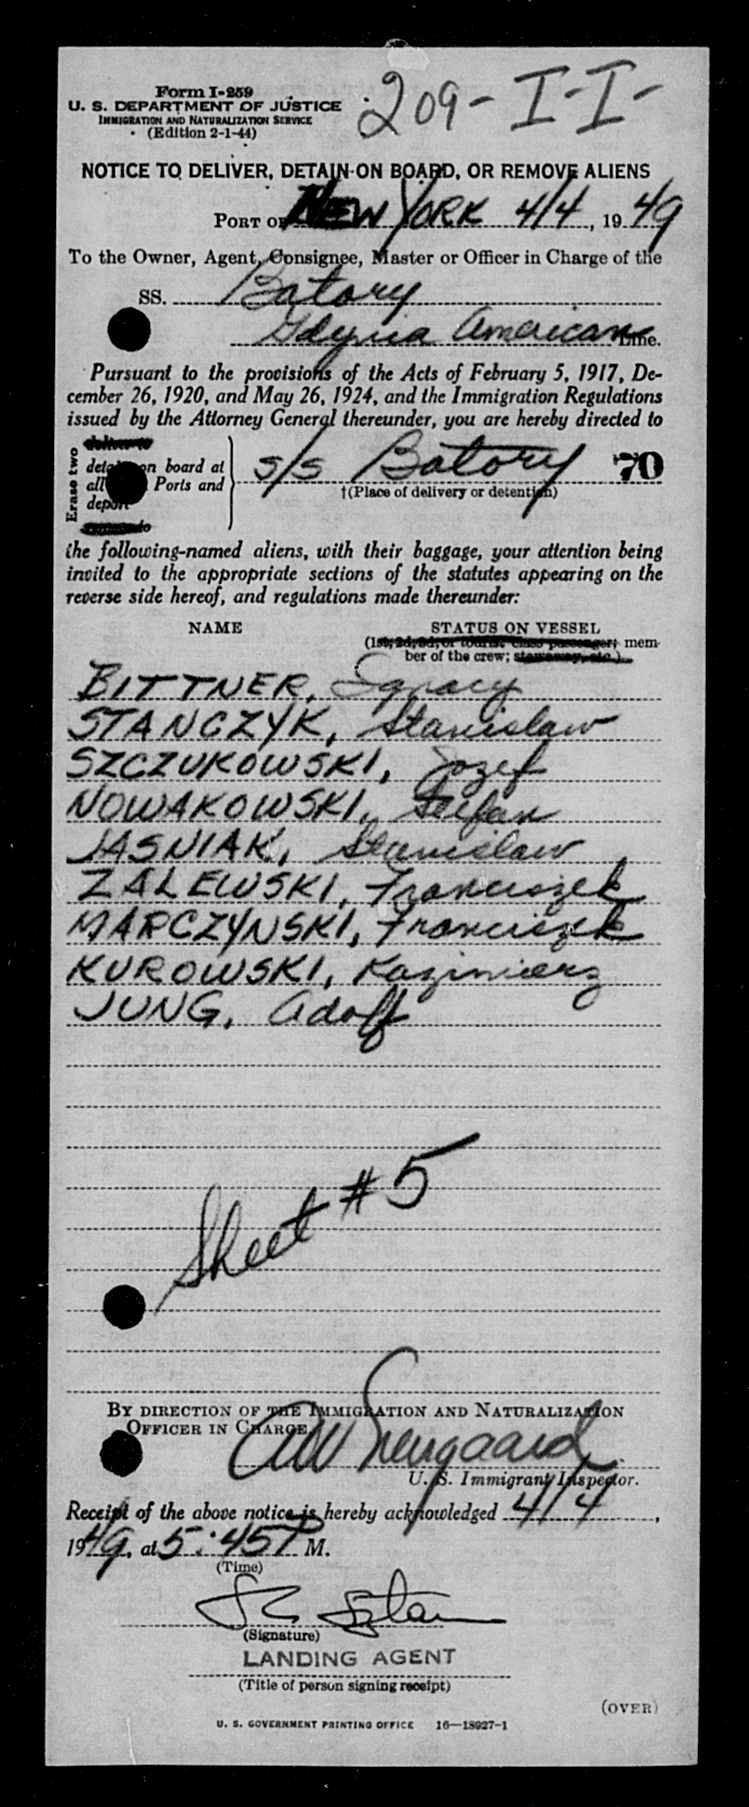 Form I-259
U. S. DEPARTMENT OF JUSTICE
IMMIGRATION AND NATURALIZATION SERVICE
(Edition 2-1-44)
209-I-I-
NOTICE TO DELIVER, DETAIN ON BOARD, OR REMOVE ALIENS
PORT OF NEW YORK 4/4, 1949
To the Owner, Agent, Consignee, Master or Officer in Charge of the
SS. Batory
Gdynia American Line.
Pursuant to the provisions of the Acts of February 5, 1917, De-
cember 26, 1920, and May 26, 1924, and the Immigration Regulations
issued by the Attorney General thereunder, you are hereby directed to
Erase two
deliver to
detain on board at
all Ports and
deport
S/S Batory 70
†(Place of delivery or detention)
the following-named aliens, with their baggage, your attention being
invited to the appropriate sections of the statutes appearing on the
reverse side hereof, and regulations made thereunder:
NAME STATUS ON VESSEL
(1st, 2d, 3d, or tourist class passenger; mem-
ber of the crew; stowaway, etc.)
BITTNER, Ignacy
STANCZYK, Stanislaw
SZCZUKOWSKI, Jozef
NOWAKOWSKI, Stefan
JASNIAK, Stanislaw
ZALEWSKI, Franciszek
MARCZYNSKI, Franciszek
KUROWSKI, Kazimierz
JUNG, Adolf
Sheet #5
BY DIRECTION OF THE IMMIGRATION AND NATURALIZATION
OFFICER IN CHARGE
U. S. Immigrant Inspector.
Receipt of the above notice is hereby acknowledged 4/4,
1949, at 5:45 P M.
(Time)
(Signature)
LANDING AGENT
(Title of person signing receipt)
(OVER)
U. S. GOVERNMENT PRINTING OFFICE 16—18927-1